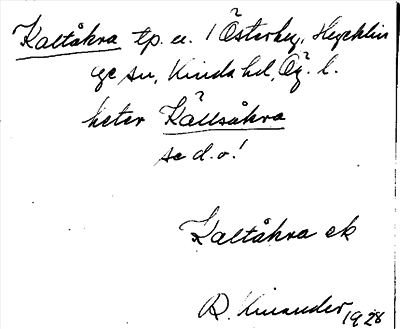 Kaltåkra tp. ee. / Österby, Hycklin
ge sn, Kinda hd, Ög. l.
heter Källsåkra
se d.o!
Kaltåkra ek
R. Kinander 1928